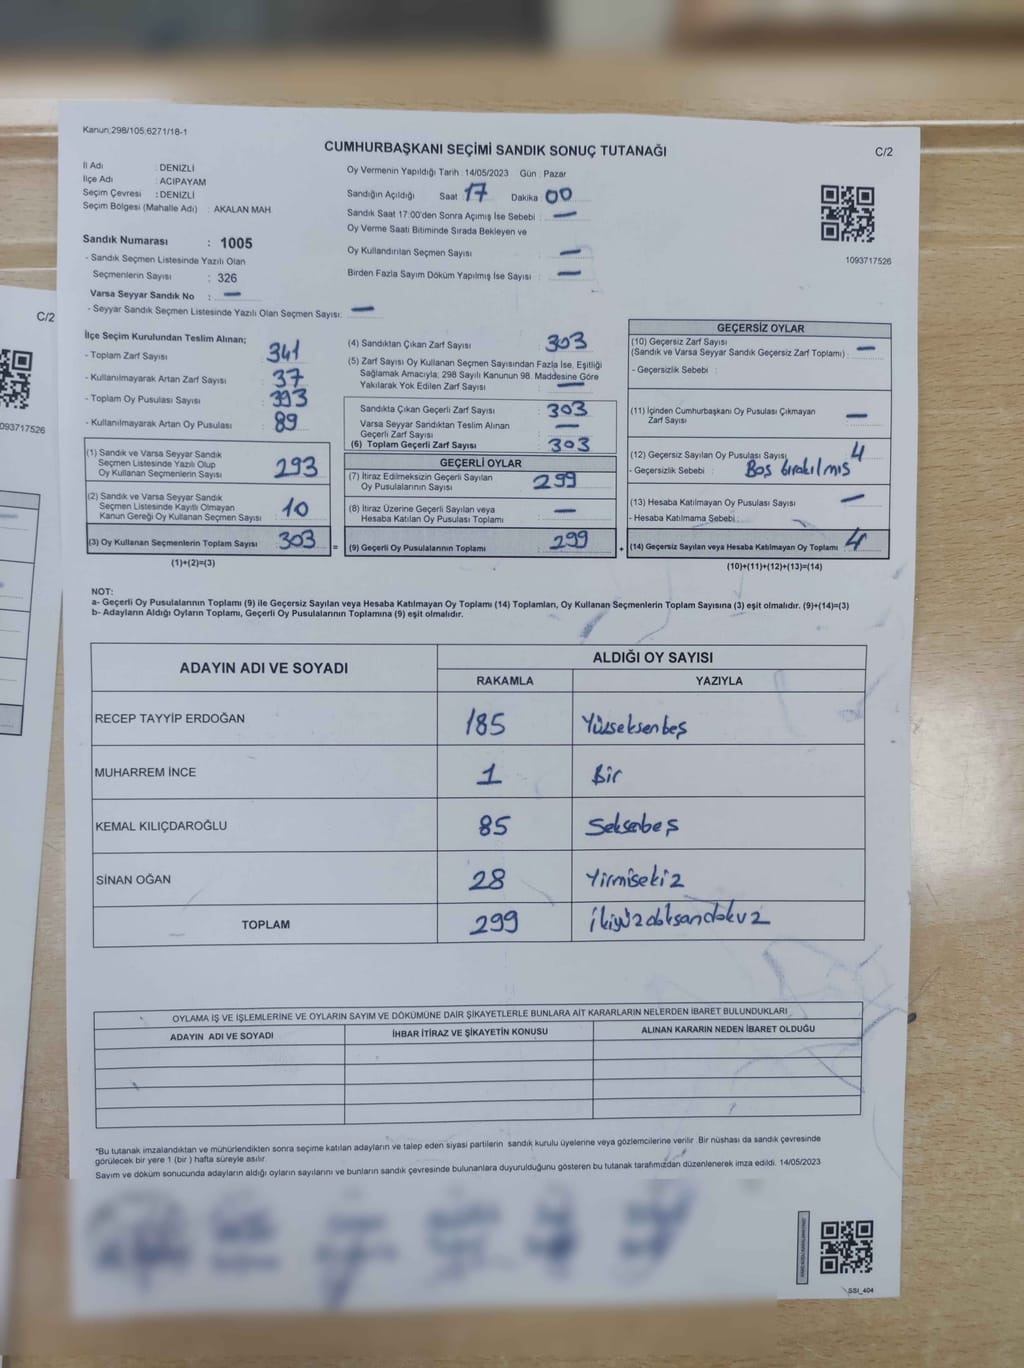 Kanun:298/105:6271/18-1
CUMHURBAŞKANI SEÇİMİ SANDIK SONUÇ TUTANAĞI
C/2
İl Adı : DENİZLİ
İlçe Adı : ACIPAYAM
Seçim Çevresi : DENİZLİ
Seçim Bölgesi (Mahalle Adı) : AKALAN MAH.
Sandık Numarası : 1005
- Sandık Seçmen Listesinde Yazılı Olan
Seçmenlerin Sayısı : 326
Varsa Seyyar Sandık No : —
- Seyyar Sandık Seçmen Listesinde Yazılı Olan Seçmen Sayısı: —
Oy Vermenin Yapıldığı Tarih : 14/05/2023 Gün : Pazar
Sandığın Açıldığı Saat 17 Dakika : 00
Sandık Saat 17:00'den Sonra Açımış İse Sebebi : —
Oy Verme Saati Bitiminde Sırada Bekleyen ve
Oy Kullandırılan Seçmen Sayısı : —
Birden Fazla Sayım Döküm Yapılmış İse Sayısı : —
1093717526
İlçe Seçim Kurulundan Teslim Alınan;
- Toplam Zarf Sayısı : 341
- Kullanılmayarak Artan Zarf Sayısı : 37
- Toplam Oy Pusulası Sayısı : 393
- Kullanılmayarak Artan Oy Pusulası : 89
(1) Sandık ve Varsa Seyyar Sandık
Seçmen Listesinde Yazılı Olup
Oy Kullanan Seçmenlerin Sayısı : 293
(2) Sandık ve Varsa Seyyar Sandık
Seçmen Listesinde Kayıtlı Olmayan
Kanun Gereği Oy Kullanan Seçmen Sayısı : 10
(3) Oy Kullanan Seçmenlerin Toplam Sayısı : 303
(1)+(2)=(3)
(4) Sandıktan Çıkan Zarf Sayısı : 303
(5) Zarf Sayısı Oy Kullanan Seçmen Sayısından Fazla İse, Eşitliği
Sağlamak Amacıyla, 298 Sayılı Kanunun 98. Maddesine Göre
Yakılarak Yok Edilen Zarf Sayısı : —
Sandıkta Çıkan Geçerli Zarf Sayısı : 303
Varsa Seyyar Sandıktan Teslim Alınan
Geçerli Zarf Sayısı : —
(6) Toplam Geçerli Zarf Sayısı : 303
GEÇERLİ OYLAR
(7) İtiraz Edilmeksizin Geçerli Sayılan
Oy Pusulalarının Sayısı : 299
(8) İtiraz Üzerine Geçerli Sayılan veya
Hesaba Katılan Oy Pusulası Toplamı : —
= (9) Geçerli Oy Pusulalarının Toplamı : 299
GEÇERSİZ OYLAR
(10) Geçersiz Zarf Sayısı
(Sandık ve Varsa Seyyar Sandık Geçersiz Zarf Toplamı) : —
- Geçersizlik Sebebi :
(11) İçinden Cumhurbaşkanı Oy Pusulası Çıkmayan
Zarf Sayısı : —
(12) Geçersiz Sayılan Oy Pusulası Sayısı : 4
- Geçersizlik Sebebi : Boş bırakılmış
(13) Hesaba Katılmayan Oy Pusulası Sayısı : —
- Hesaba Katılmama Sebebi :
+ (14) Geçersiz Sayılan veya Hesaba Katılmayan Oy Toplamı : 4
(10)+(11)+(12)+(13)=(14)
NOT:
a- Geçerli Oy Pusulalarının Toplamı (9) ile Geçersiz Sayılan veya Hesaba Katılmayan Oy Toplamı (14) Toplamları, Oy Kullanan Seçmenlerin Toplam Sayısına (3) eşit olmalıdır. (9)+(14)=(3)
b- Adayların Aldığı Oyların Toplamı, Geçerli Oy Pusulalarının Toplamına (9) eşit olmalıdır.
ADAYIN ADI VE SOYADI
ALDIĞI OY SAYISI
RAKAMLA YAZIYLA
RECEP TAYYİP ERDOĞAN 185 Yüzseksenbeş
MUHARREM İNCE 1 Bir
KEMAL KILIÇDAROĞLU 85 Seksenbeş
SİNAN OĞAN 28 Yirmisekiz
TOPLAM 299 İkiyüzdoksandokuz
OYLAMA İŞ VE İŞLEMLERİNE VE OYLARIN SAYIM VE DÖKÜMÜNE DAİR ŞİKAYETLERLE BUNLARA AİT KARARLARIN NELERDEN İBARET BULUNDUKLARI
ADAYIN ADI VE SOYADI İHBAR İTİRAZ VE ŞİKAYETİN KONUSU ALINAN KARARIN NEDEN İBARET OLDUĞU
*Bu tutanak imzalandıktan ve mühürlendikten sonra seçime katılan adayların ve talep eden siyasi partilerin sandık kurulu üyelerine veya gözlemcilerine verilir. Bir nüshası da sandık çevresinde
görülecek bir yere 1 (bir) hafta süreyle asılır.
Sayım ve döküm sonucunda adayların aldığı oyların sayılarını ve bunların sandık çevresinde bulunanlara duyurulduğunu gösteren bu tutanak tarafımızdan düzenlenerek imza edildi. 14/05/2023
SSI_404
C/2
093717526